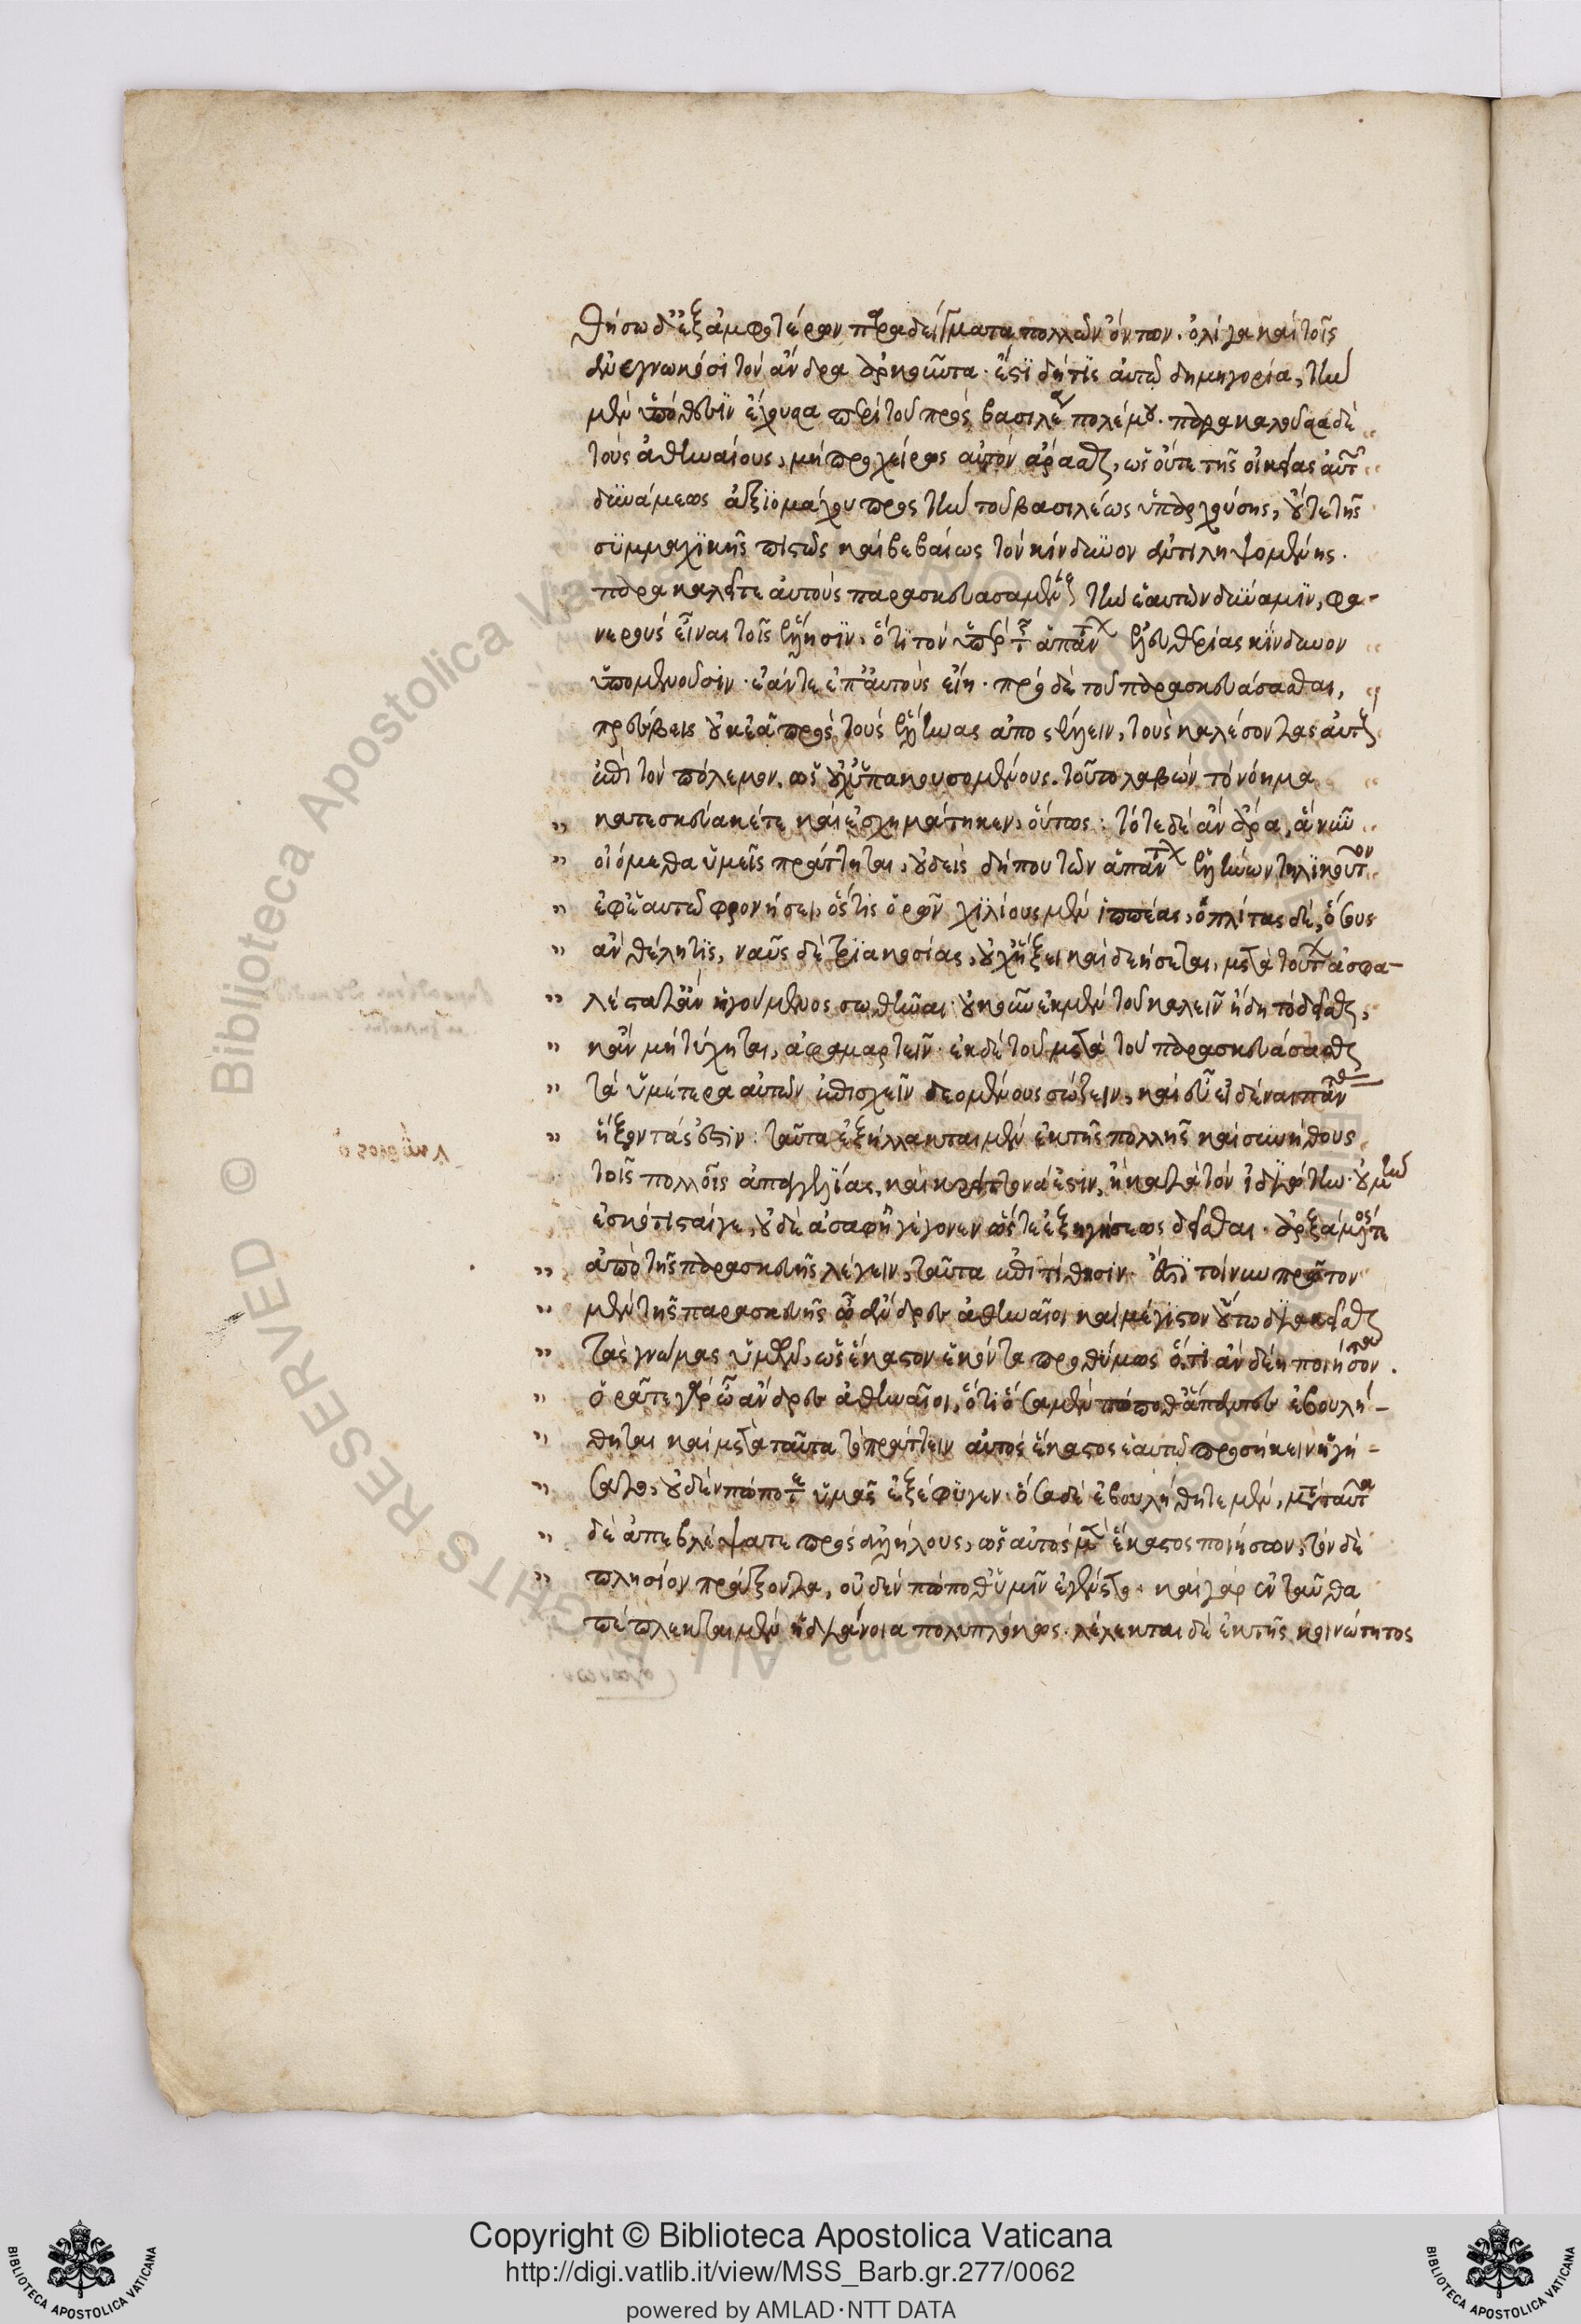 θήσω δ' ἐξ ἀμφοτέρων παραδείγματα πολλῶν ὄντων. ὀλίγα καὶ τοῖς
ἀνεγνωκόσι τὸν ἄνδρα ἀρκοῦντα. ἔστι δή τις αὐτῷ δημηγορία, τὴν
μὲν ὑπόθεσιν ἔχουσα περὶ τοῦ πρὸς βασιλέα πολέμου. παρακαλοῦσα δὲ
τοὺς ἀθηναίους, μὴ προχείρως αὐτὸν ἄρασθαι, ὡς οὔτε τῆς οἰκείας αὐτ
δυνάμεως ἀξιομάχου πρὸς τὴν τοῦ βασιλέως ὑπαρχούσης, οὔτε τῆς
συμμαχικῆς πιστῶς καὶ βεβαίως τὸν κίνδυνον ἀντιληψομένης.
παρακαλεῖ τε αὐτοὺς παρασκευασαμένους τὴν ἑαυτῶν δύναμιν, φα-
νεροὺς εἶναι τοῖς ἕλλησιν, ὅτι τὸν ὑπὲρ τῆς ἁπάντων ἐλευθερίας κίνδυνον
ὑπομενοῦσιν. ἐάν τε ἐπ' αὐτοὺς εἴη. πρὸ δὲ τοῦ παρασκευάσασθαι,
πρέσβεις οὐκ ἐᾷ πρὸς τοὺς ἕλληνας ἀποστέλλειν, τοὺς καλέσοντας αὐτοὺς
ἐπὶ τὸν πόλεμον, ὡς οὐχ ὑπακουσομένους. τοῦτο λαβὼν τὸ νόημα
" κατεσκεύακέ τε καὶ ἐσχημάτηκεν, οὕτως: τότε δὲ ἄνδρα, ἃ νῦν
" οἰόμεθα ὑμεῖς πράττηται, οὐδεὶς δήπου τῶν ἁπάντων ἑλλήνων τηλικοῦτον
" ἐφ' ἑαυτῷ φρονήσει, ὅστις ὁρῶν χιλίους μὲν ἱππέας, ὁπλίτας δὲ, ὅσους
" ἂν θέλῃ τις, ναῦς δὲ τριακοσίας, οὐχ ἥξει καὶ δεήσεται, μετὰ τούτων ἀσφα-
" λέστατ' ἂν ἡγούμενος σωθῆναι· οὐκοῦν ἐκ μὲν τοῦ καλεῖν ἤδη τὸ δεῖσθαι,
" κἂν μὴ τύχηται, ἀφαμαρτεῖν. ἐκ δὲ τοῦ μετὰ τοῦ παρασκευάσασθαι
" τὰ ὑμέτερα αὐτῶν ἐπισχεῖν δεομένους σώζειν, καὶ εὖ εἰδέναι πάνθ
" ἥξοντάς ἐστιν: ταῦτα ἐξήλλακται μὲν ἐκ τῆς πολλῆς καὶ συνήθους
τοῖς πολλοῖς ἀπαγγελίας, καὶ κρείττονά ἐστιν, ἢ κατὰ τὸν ἰδιώτην. οὐ μὴν
ἐσκότισταί γε, οὐδὲ ἀσαφῆ γέγονεν ὥστε ἐξηγήσεως δεῖσθαι. ἀρξάμενός τε
" ἀπὸ τῆς παρασκευῆς λέγειν, ταῦτα ἐπιτίθησιν. ἔστι τοίνυν πρῶτον
" μὲν τῆς παρασκευῆς ὦ ἄνδρες ἀθηναῖοι καὶ μέγιστον οὕτω διακεῖσθαι
" τὰς γνώμας ὑμῶν, ὡς ἕκαστον ἑκόντα προθύμως ὅτι ἂν δέῃ ποιήσοντα.
" ὁρᾶτε γὰρ ὦ ἄνδρες ἀθηναῖοι, ὅτι ὅσα μὲν πώποθ' ἅπαντες ἐβουλή-
" θηται καὶ μετὰ ταῦτα τὸ πράττειν αὐτὸς ἕκαστος ἑαυτῷ προσήκειν ἡγή-
" σατο, οὐδὲν πώποτε ὑμᾶς ἐξέφυγεν. ὅσα δὲ ἐβουλήθητε μὲν, μετὰ ταῦτα
" δὲ ἀπεβλέψατε πρὸς ἀλλήλους, ὡς αὐτὸς μὲν ἕκαστος ποιήσων, τὸν δὲ
" πλησίον πράξοντα, οὐδὲν πώποθ' ὑμῖν ἐγένετο. καὶ γὰρ ἐνταῦθα
πέπλεκται μὲν ἡ διάνοια πολυπλόκως. λέλεκται δὲ ἐκ τῆς κοινότητος
Copyright © Biblioteca Apostolica Vaticana
http://digi.vatlib.it/view/MSS_Barb.gr.277/0062
powered by AMLAD·NTT DATA